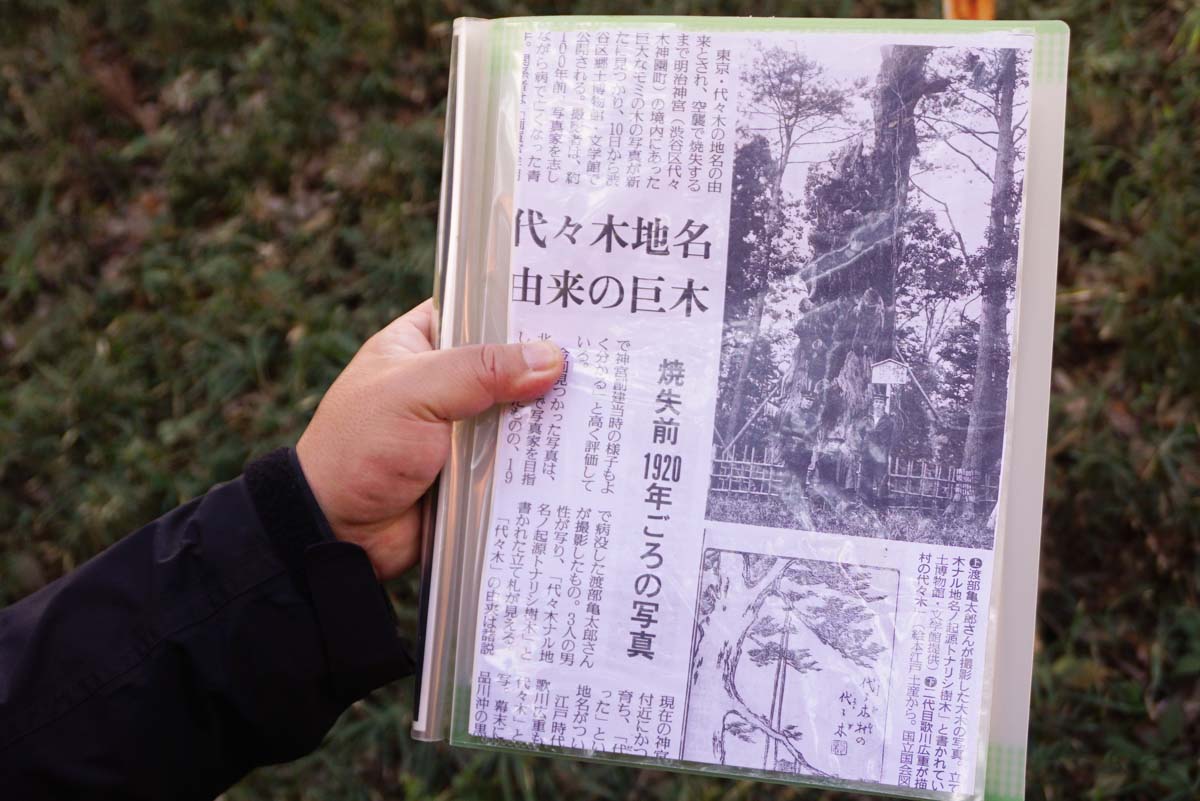 東京・代々木の地名の由
来とされ、空襲で焼失する
まで明治神宮(渋谷区代々
木神園町)の境内にあった
巨大なモミの木の写真が新
たに見つかり、10日から渋
谷区郷土博物館・文学館で
公開される。撮影者は、約
100年前、写真家を志し
ながら病で亡くなった青
年。関係者は
代々木地名
由来の巨木
焼失前 1920年ごろの写真
で神宮創建当時の様子もよ
く分かる」と高く評価して
いる。
今回見つかった写真は、
で写真家を目指
ものの、19
で病没した渡部亀太郎さん
が撮影したもの。3人の男
性が写り、「代々木ナル地
名ノ起源トナリシ樹木」と
書かれた立て札が見える。
「代々木」の由来は諸説
現在の神宮
付近にかつ
育ち、「代
った」とい
地名がつい
江戸時代
歌川広重も
代々木」と
写。幕末に
品川沖の黒
㊤渡部亀太郎さんが撮影した大木の写真。立て
木ナル地名ノ起源トナリシ樹木」と書かれてい
土博物館・文学館提供)㊦二代目歌川広重が描
村の代々木(絵本江戸土産から。国立国会図
代々木村の
代々木